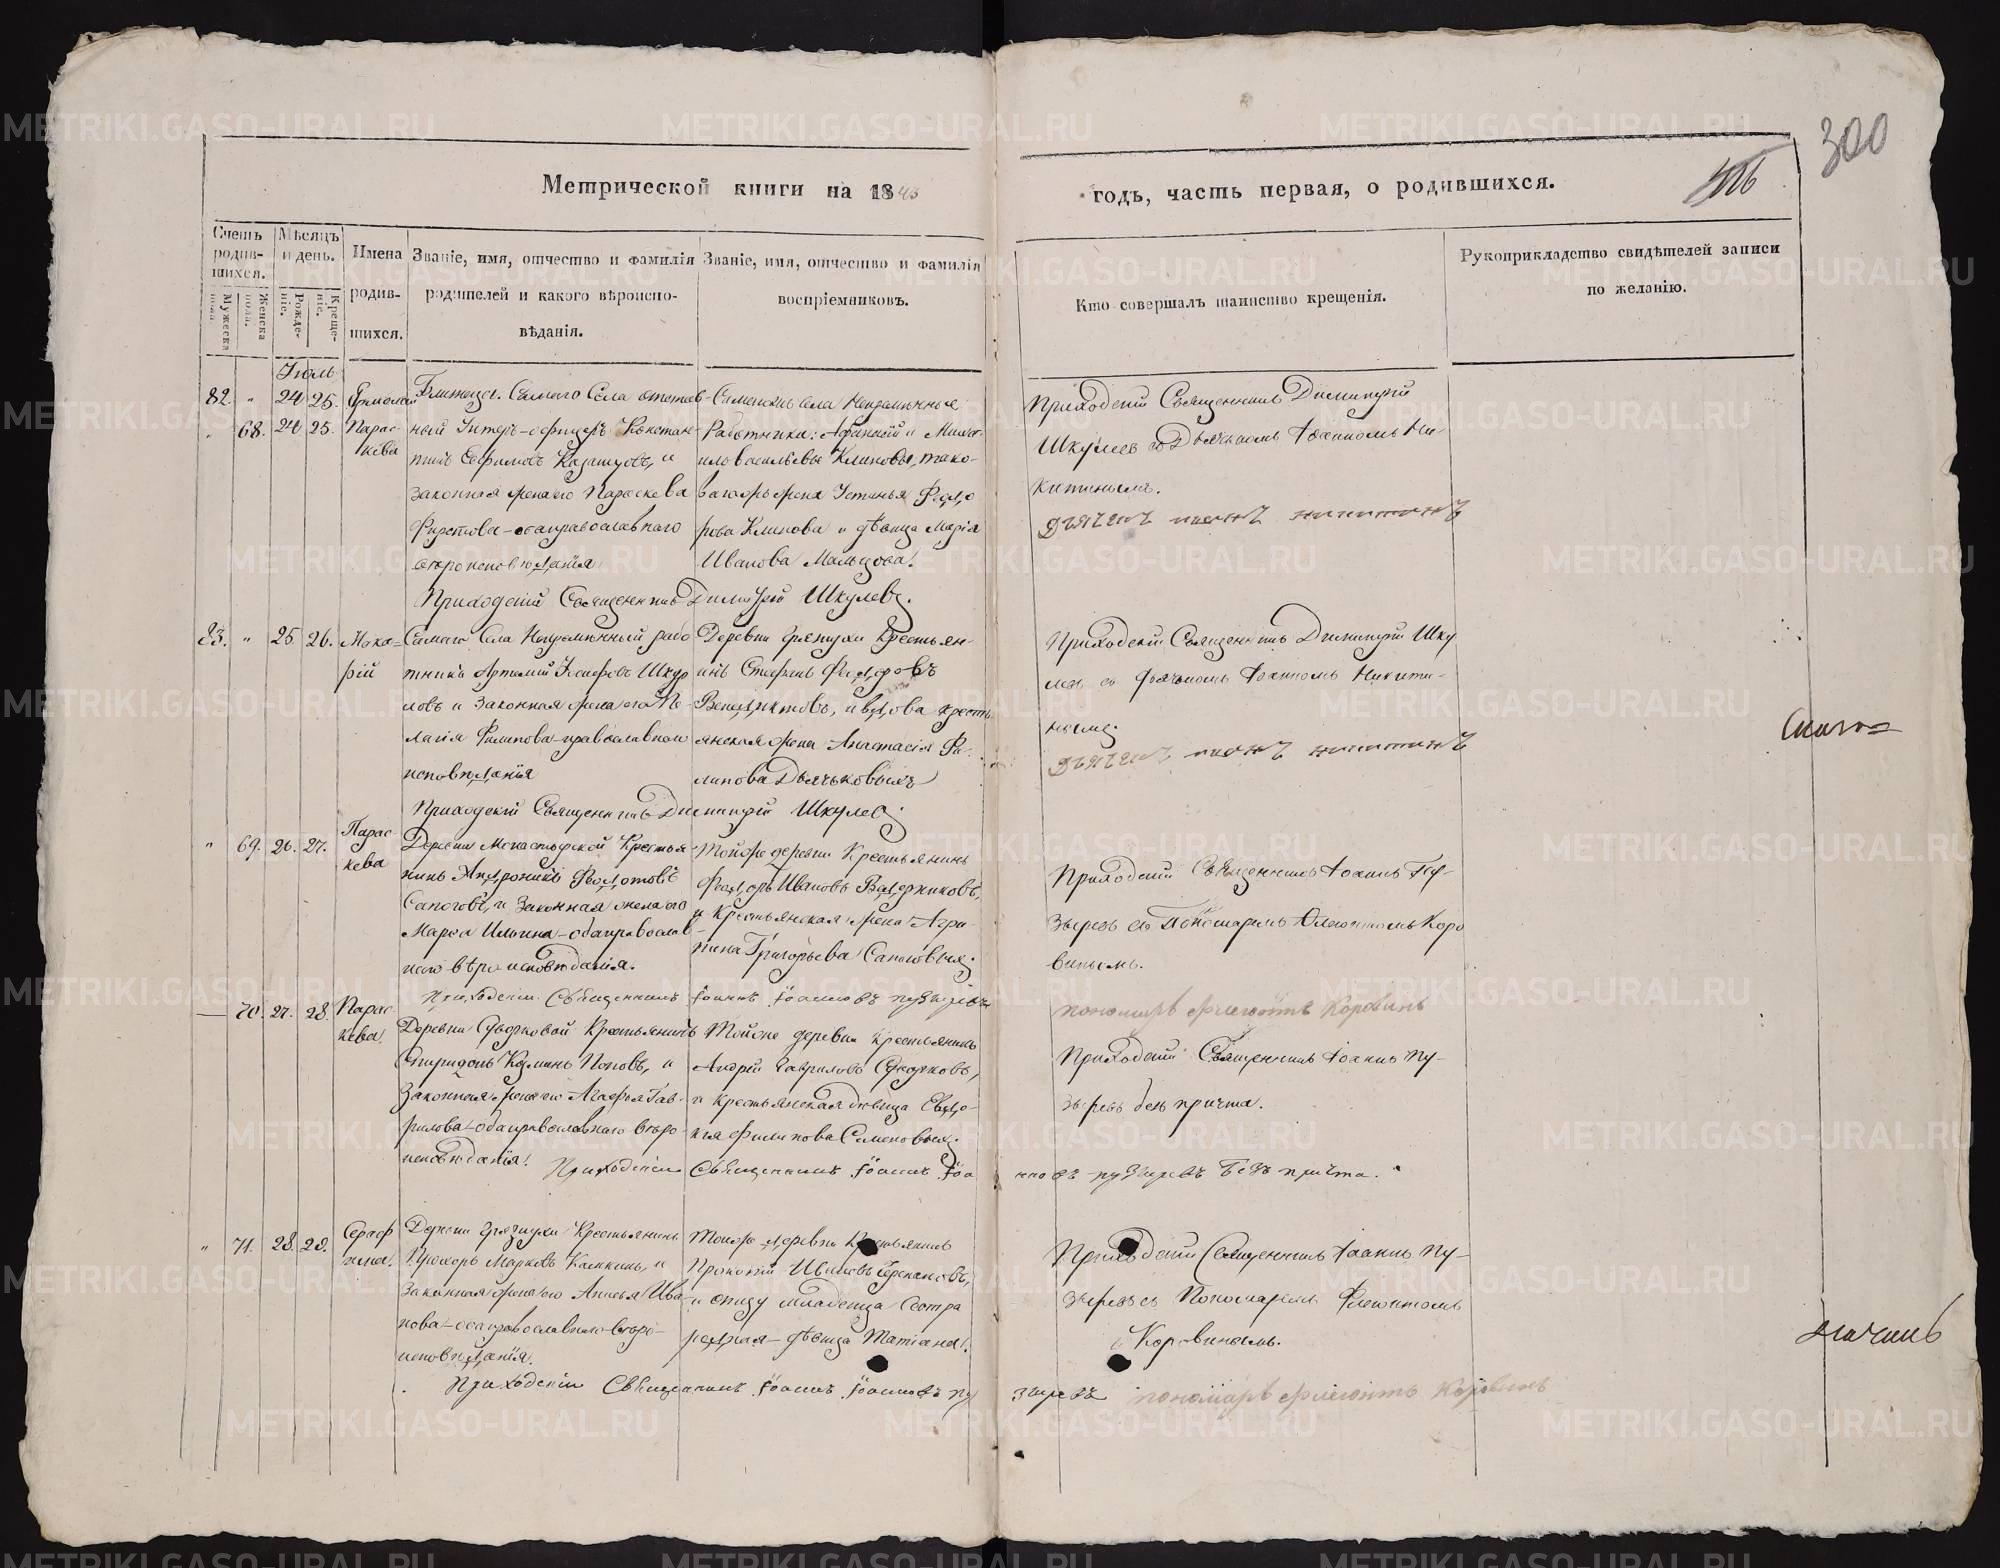 300
Метрической книги на 1843
годъ, часть первая, о родившихся.
Счетъ родив-шихся.
Мужеска пола.
Женска пола.
Мѣсяцъ и день.
Рожде-ніе.
Креще-ніе.
Имена родив-шихся.
Званіе, имя, отчество и фамилія родителей и какого вѣроиспо-вѣданія.
Званіе, имя, отчество и фамилія воспріемниковъ.
Кто совершалъ таинство крещенія.
Рукоприкладство свидѣтелей записи по желанію.
Іюль
82. " 24 25.
" 68. 24 25. Парас-
кева
Близнецы. Самаго Села отстав-
ной Унтеръ-офицеръ Констан-
тинъ Евфимовъ и
законная жена его Параскева
обаправославнаго
вѣроисповѣданія
Самаго села Непремѣнные
Работники:
ловъ Васильевы Климовы, тако-
ваго жъ жена Устинья Федо
рова Климова и дѣвица Марія
Иванова Мальцова.
Приходскій Священникъ Димитрій
Шкулевъ съ Дьячкомъ Іоанномъ Ни-
китинымъ.
Дьячекъ иванъ никитинъ
Приходскій Священникъ Димитрій Шкулевъ.
83. " 25 26. Мака-
рій
Самаго Села Непремѣнный рабо
тникъ Артемій Іосифовъ
ловъ и законная жена его Пе-
лагія Филипова православнаго
исповѣданія
Деревни Грязнухи крестьян-
инъ Стефанъ Федоровъ
Венедиктовъ, и вдова крестъ
янская жена Анастасія Фи-
липова Дьячьковыхъ
Приходскій Священникъ Димитрій Шку
левъ съ дьячкомъ Іоанномъ Никити-
нымъ.
Дьячекъ иванъ никитинъ
Приходскій Священникъ Димитрій Шкулевъ.
" 69. 26. 27. Парас-
кева
Деревни Монастырской Крестья
нинъ Андроникъ Федотовъ
Сапоговъ, и Законная жена его
Марѳа Ильина обаправослав
наго вѣроисповѣданія.
Тойже деревни Крестьянинъ
Федоръ Ивановъ
и Крестьянская жена Агри-
пина Григорьева Сапоговыхъ.
Приходскій Священникъ Іоаннъ Пу-
зыревъ съ Пономаремъ Флегонтомъ Коро
винымъ.
пономарь флегонтъ Коровинъ
Приходскій Священникъ Іоаннъ Іоанновъ пузыревъ
70. 27. 28. Парас-
кева
Деревни Крестьянинъ
Спиридонъ Козминъ Поповъ, и
Законная жена его Агафья Гав-
рилова обаправославнаго вѣро-
исповѣданія.
Тойже деревни крестьянинъ
Андрей Гавриловъ
и крестьянская дѣвица Евдо-
кія Филипова Семеновыхъ.
Приходскій Священникъ Іоаннъ Пу-
зыревъ безъ причта.
Приходскій Священникъ Іоаннъ Іоа
нновъ пузыревъ безъ причта.
" 71. 28. 29. Сераф
има.
Деревни Грязнухи Крестьянинъ
Прохоръ Марковъ Камкинъ, и
Законная жена его Анисья Ива
нова обаправославнаго вѣро-
исповѣданія.
Тойже деревни Крестьянинъ
Прокопій Ивановъ
и отцу младенца Сестра
родная дѣвица Татіана.
Приходскій Священникъ Іоаннъ Пу-
зыревъ съ Пономаремъ Флегонтомъ
Коровинымъ.
Приходскій Священникъ Іоаннъ Іоанновъ пу
зыревъ пономарь флегонтъ Коровинъ
METRIKI.GASO-URAL.RU